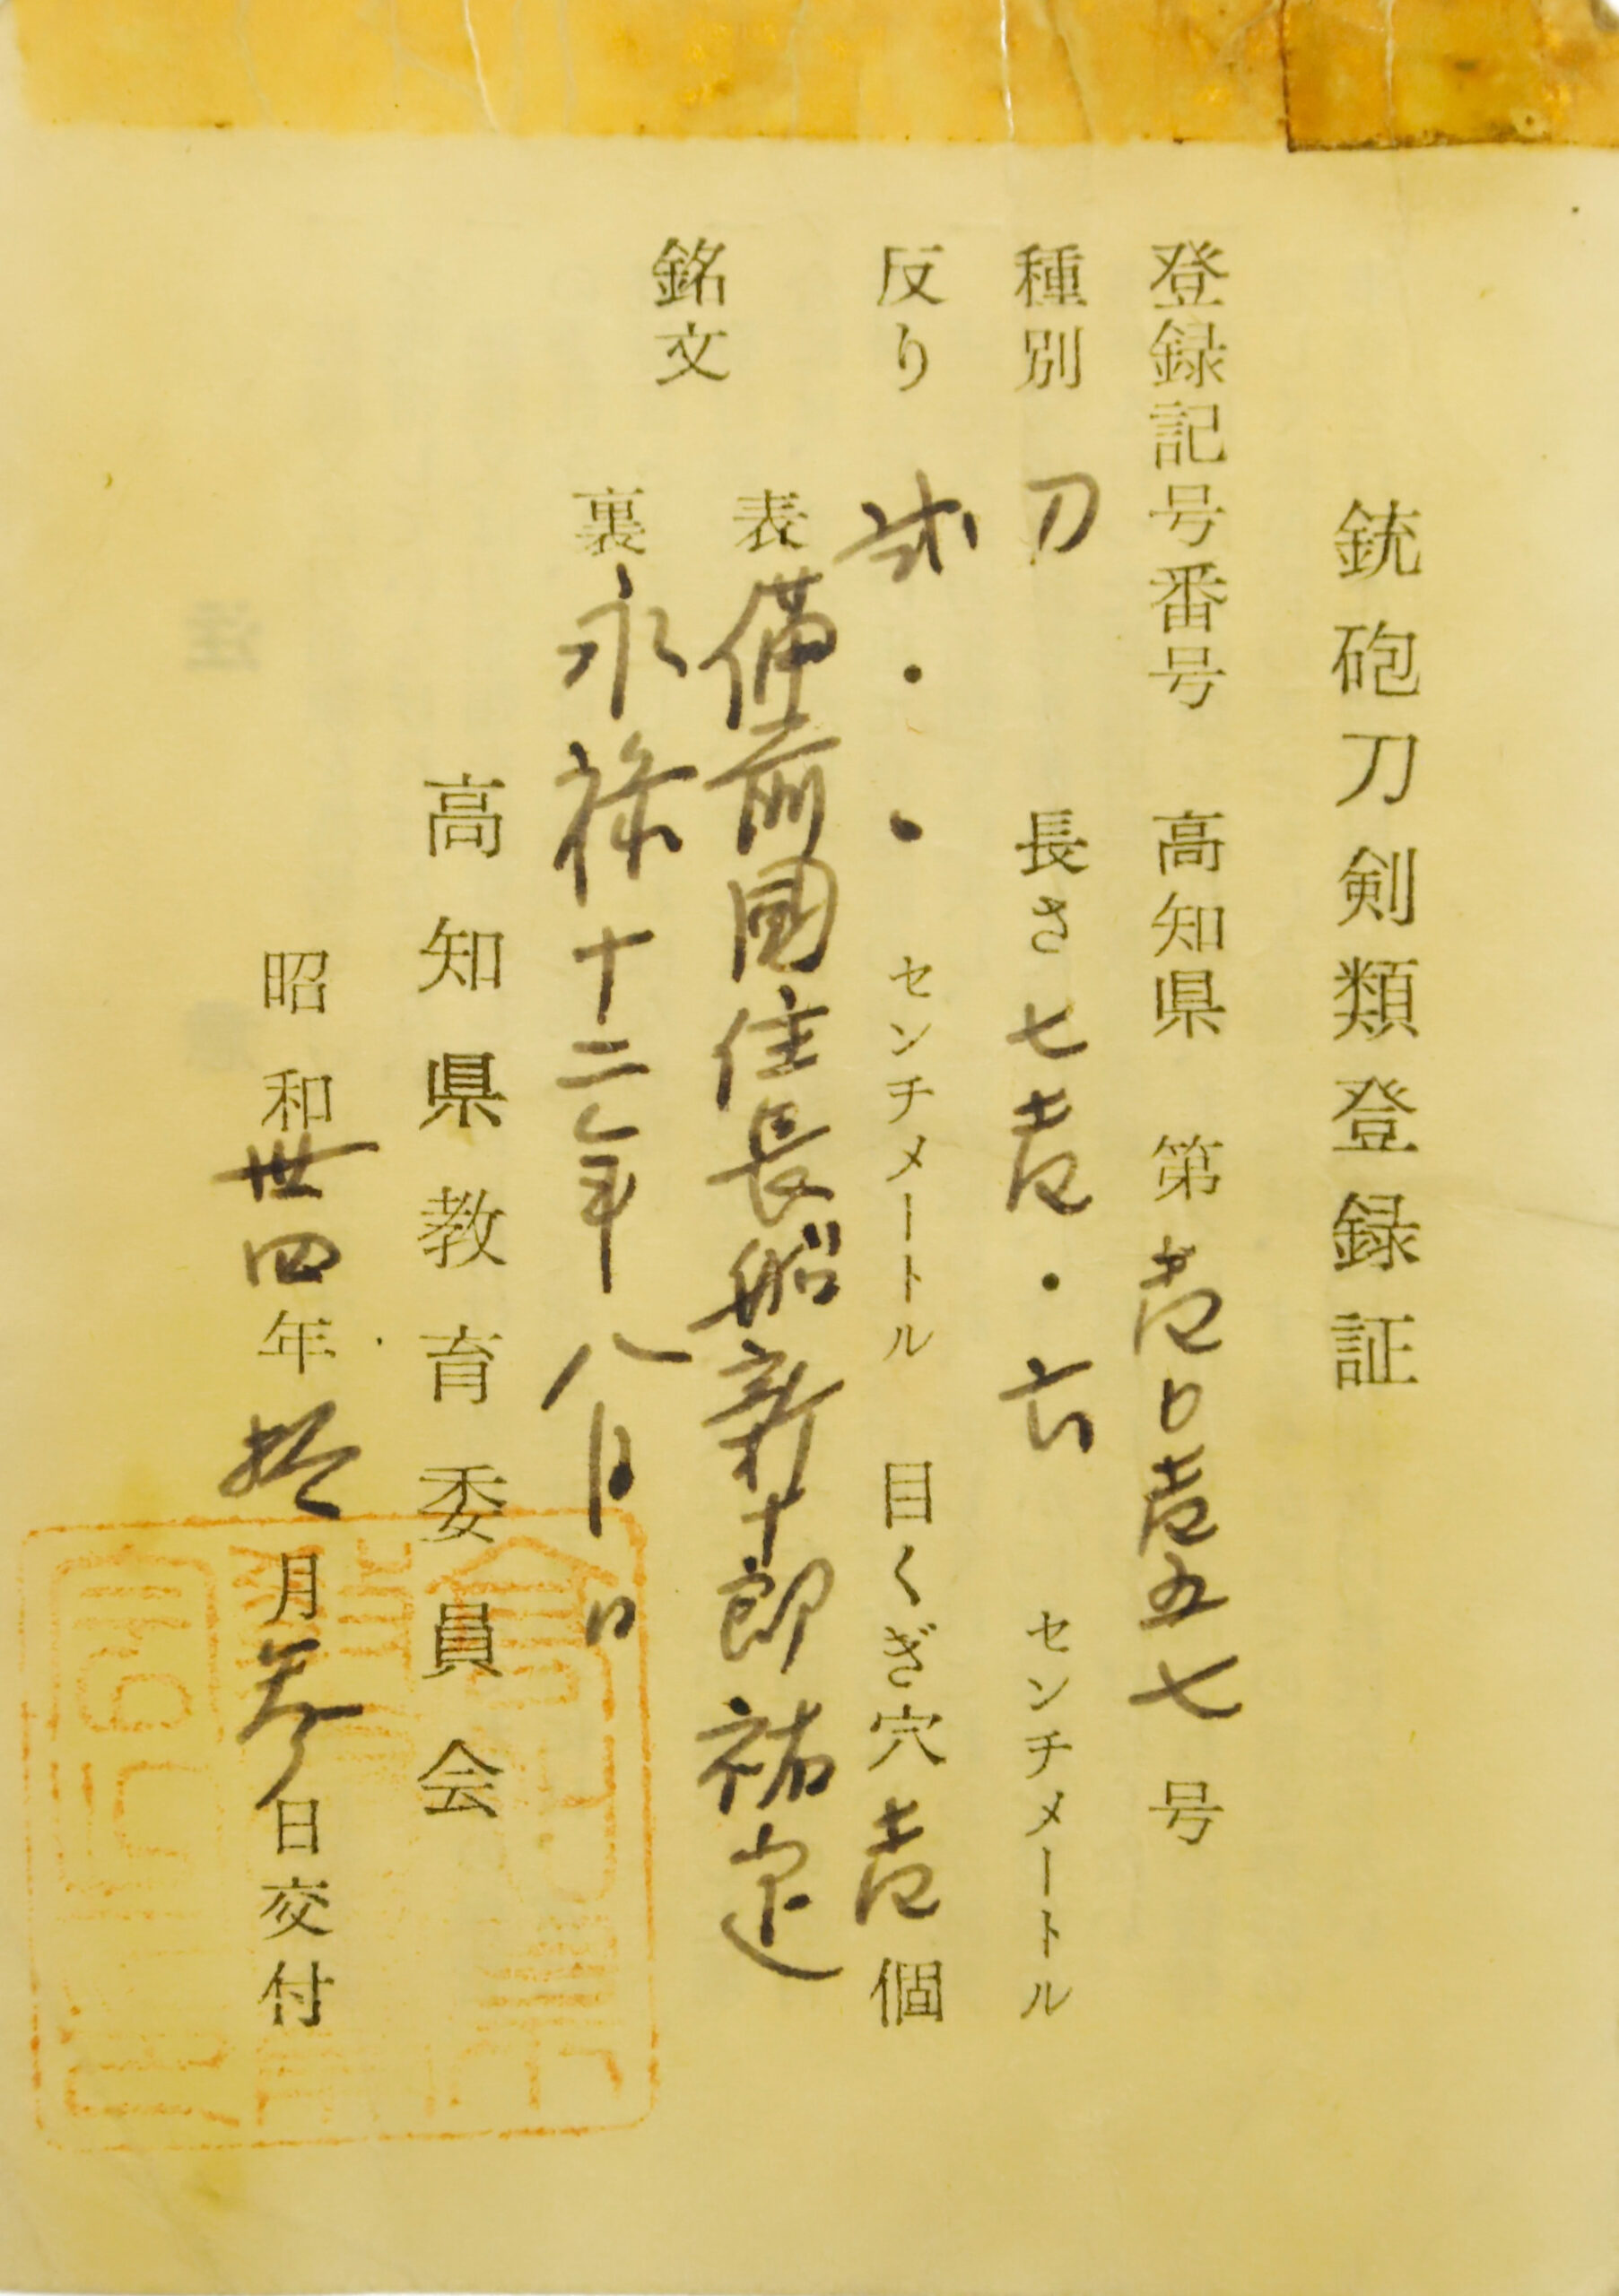 銃砲刀剣類登録証
登録記号番号 高知県 第壱〇壱五七号
種別 刀 長さ 七壱・六 センチメートル
反り 弐・・ センチメートル 目くぎ穴 壱個
銘文
表 備前國住長船新十郎祐定
裏 永禄十二年八月日
高知県教育委員会
昭和卅四年拾月参日交付